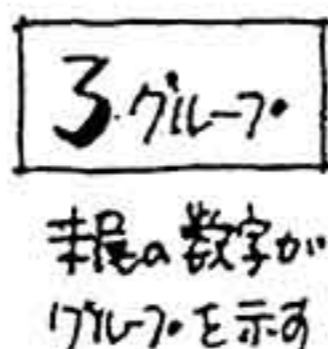 3グループ
末尾の数字が
グループを示す